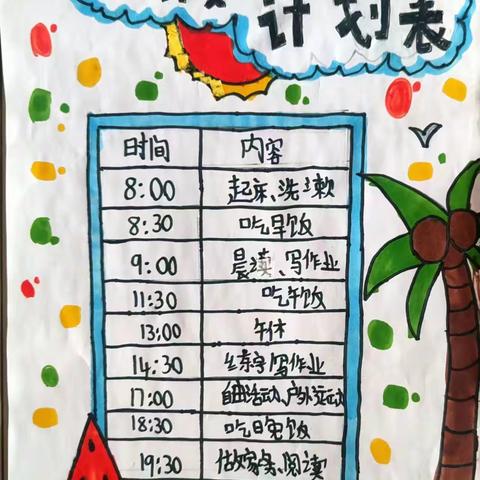 计划表
时间 内容
8:00 起床、洗漱
8:30 吃早饭
9:00 晨读、写作业
11:30 吃午饭
13:00 午休
14:30 练字写作业
17:00 自由活动、户外运动
18:30 吃晚饭
19:30 做家务、阅读